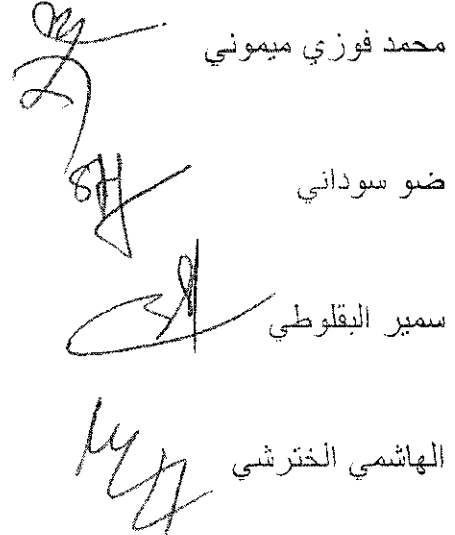 محمد فوزي ميموني
ضو سوداني
سمير البقلوطي
الهاشمي الخترشي